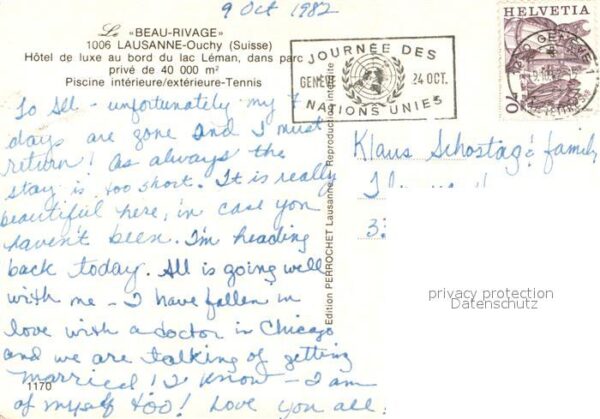 9 Oct 1982
Le «BEAU-RIVAGE»
1006 LAUSANNE-Ouchy (Suisse)
Hôtel de luxe au bord du lac Léman, dans parc
privé de 40 000 m²
Piscine intérieure/extérieure-Tennis
HELVETIA
70
GENÈVE 1
JOURNÉE DES
GENÈVE 24 OCT.
NATIONS UNIES
To All - unfortunately my 7
days are gone and I must
return! As always the
stay is too short. It is really
beautiful here, in case you
haven't been. I'm heading
back today. All is going well
with me - I have fallen in
love with a doctor in Chicago
and we are talking of getting
married! I know - I am
of myself too! Love you all
1170
Edition PERROCHET Lausanne. Reproduction interdite
Klaus Schostag & family
3
privacy protection
Datenschutz